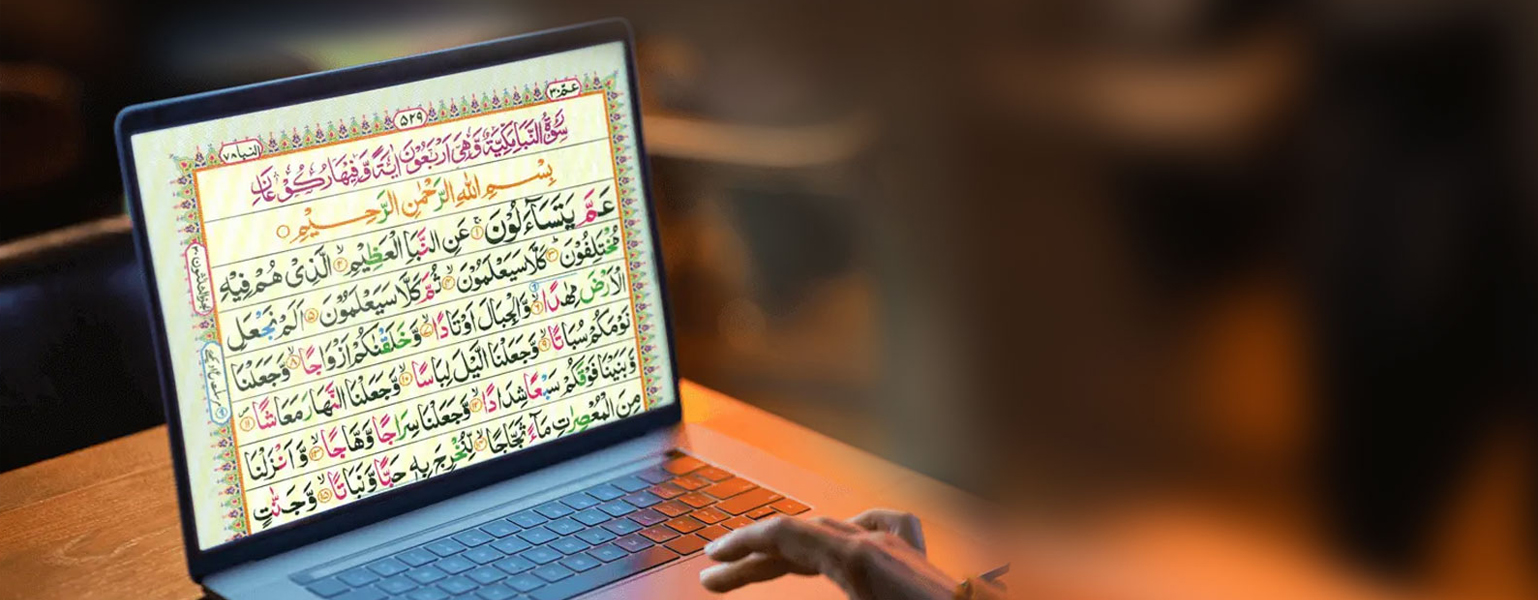 عَمَّ ٣٠
٥٢٩
النبا ٧٨
سُوْرَةُ النَّبَاِ مَكِّيَّةٌ وَّهِیَ اَرْبَعُوْنَ اٰیَةً وَّفِیْهَا رُكُوْعَانِ
بِسْمِ اللّٰهِ الرَّحْمٰنِ الرَّحِیْمِ
عَمَّ یَتَسَآءَلُوْنَ ۚ﴿۱﴾ عَنِ النَّبَاِ الْعَظِیْمِ ۙ﴿۲﴾ الَّذِیْ هُمْ فِیْهِ
مُخْتَلِفُوْنَ ؕ﴿۳﴾ كَلَّا سَیَعْلَمُوْنَ ۙ﴿۴﴾ ثُمَّ كَلَّا سَیَعْلَمُوْنَ ﴿۵﴾ اَلَمْ نَجْعَلِ
الْاَرْضَ مِهٰدًا ۙ﴿۶﴾ وَّالْجِبَالَ اَوْتَادًا ۪ۙ﴿۷﴾ وَّخَلَقْنٰكُمْ اَزْوَاجًا ۙ﴿۸﴾ وَّجَعَلْنَا
نَوْمَكُمْ سُبَاتًا ۙ﴿۹﴾ وَّجَعَلْنَا الَّیْلَ لِبَاسًا ۙ﴿۱۰﴾ وَّجَعَلْنَا النَّهَارَ مَعَاشًا ۪﴿۱۱﴾
وَّبَنَیْنَا فَوْقَكُمْ سَبْعًا شِدَادًا ۙ﴿۱۲﴾ وَّجَعَلْنَا سِرَاجًا وَّهَّاجًا ۪ۙ﴿۱۳﴾ وَّاَنْزَلْنَا
مِنَ الْمُعْصِرٰتِ مَآءً ثَجَّاجًا ۙ﴿۱۴﴾ لِّنُخْرِجَ بِهٖ حَبًّا وَّنَبَاتًا ۙ﴿۱۵﴾ وَّجَنّٰتٍ